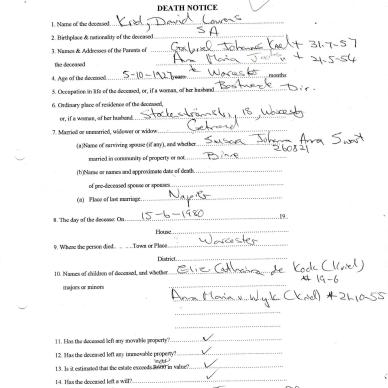 DEATH NOTICE
1. Name of the deceased Kriel, David Lourens
2. Birthplace & nationality of the deceased SA
3. Names & Addresses of the Parents of Gabriel Johannes Kriel + 31-7-57
the deceased Ana Maria + 31-5-54
4. Age of the deceased 5-10-1927 years * Worcester months
5. Occupation in life of the deceased, or, if a woman, of her husband Dir.
6. Ordinary place of residence of the deceased,
or, if a woman, of her husband 18, Worcester
7. Married or unmarried, widower or widow Getroud
(a)Name of surviving spouse (if any), and whether Susara Johanna Swart
married in community of property or not Bine 260821
(b)Name or names and approximate date of death
of pre-deceased spouse or spouses
(c) Place of last marriage Napier
8. The day of the decease: On 15-6-1980 19
House
9. Where the person died. Town or Place Worcester
District
10. Names of children of deceased, and whether Catharina de Kock (Kriel)
majors or minors * 19-6
Anna Maria v. Wyk (Kriel) * 241055
11. Has the deceased left any movable property? ✓
12. Has the deceased left any immovable property? ✓
13. Is it estimated that the estate exceeds in value? ✓
14. Has the deceased left a will? ✓